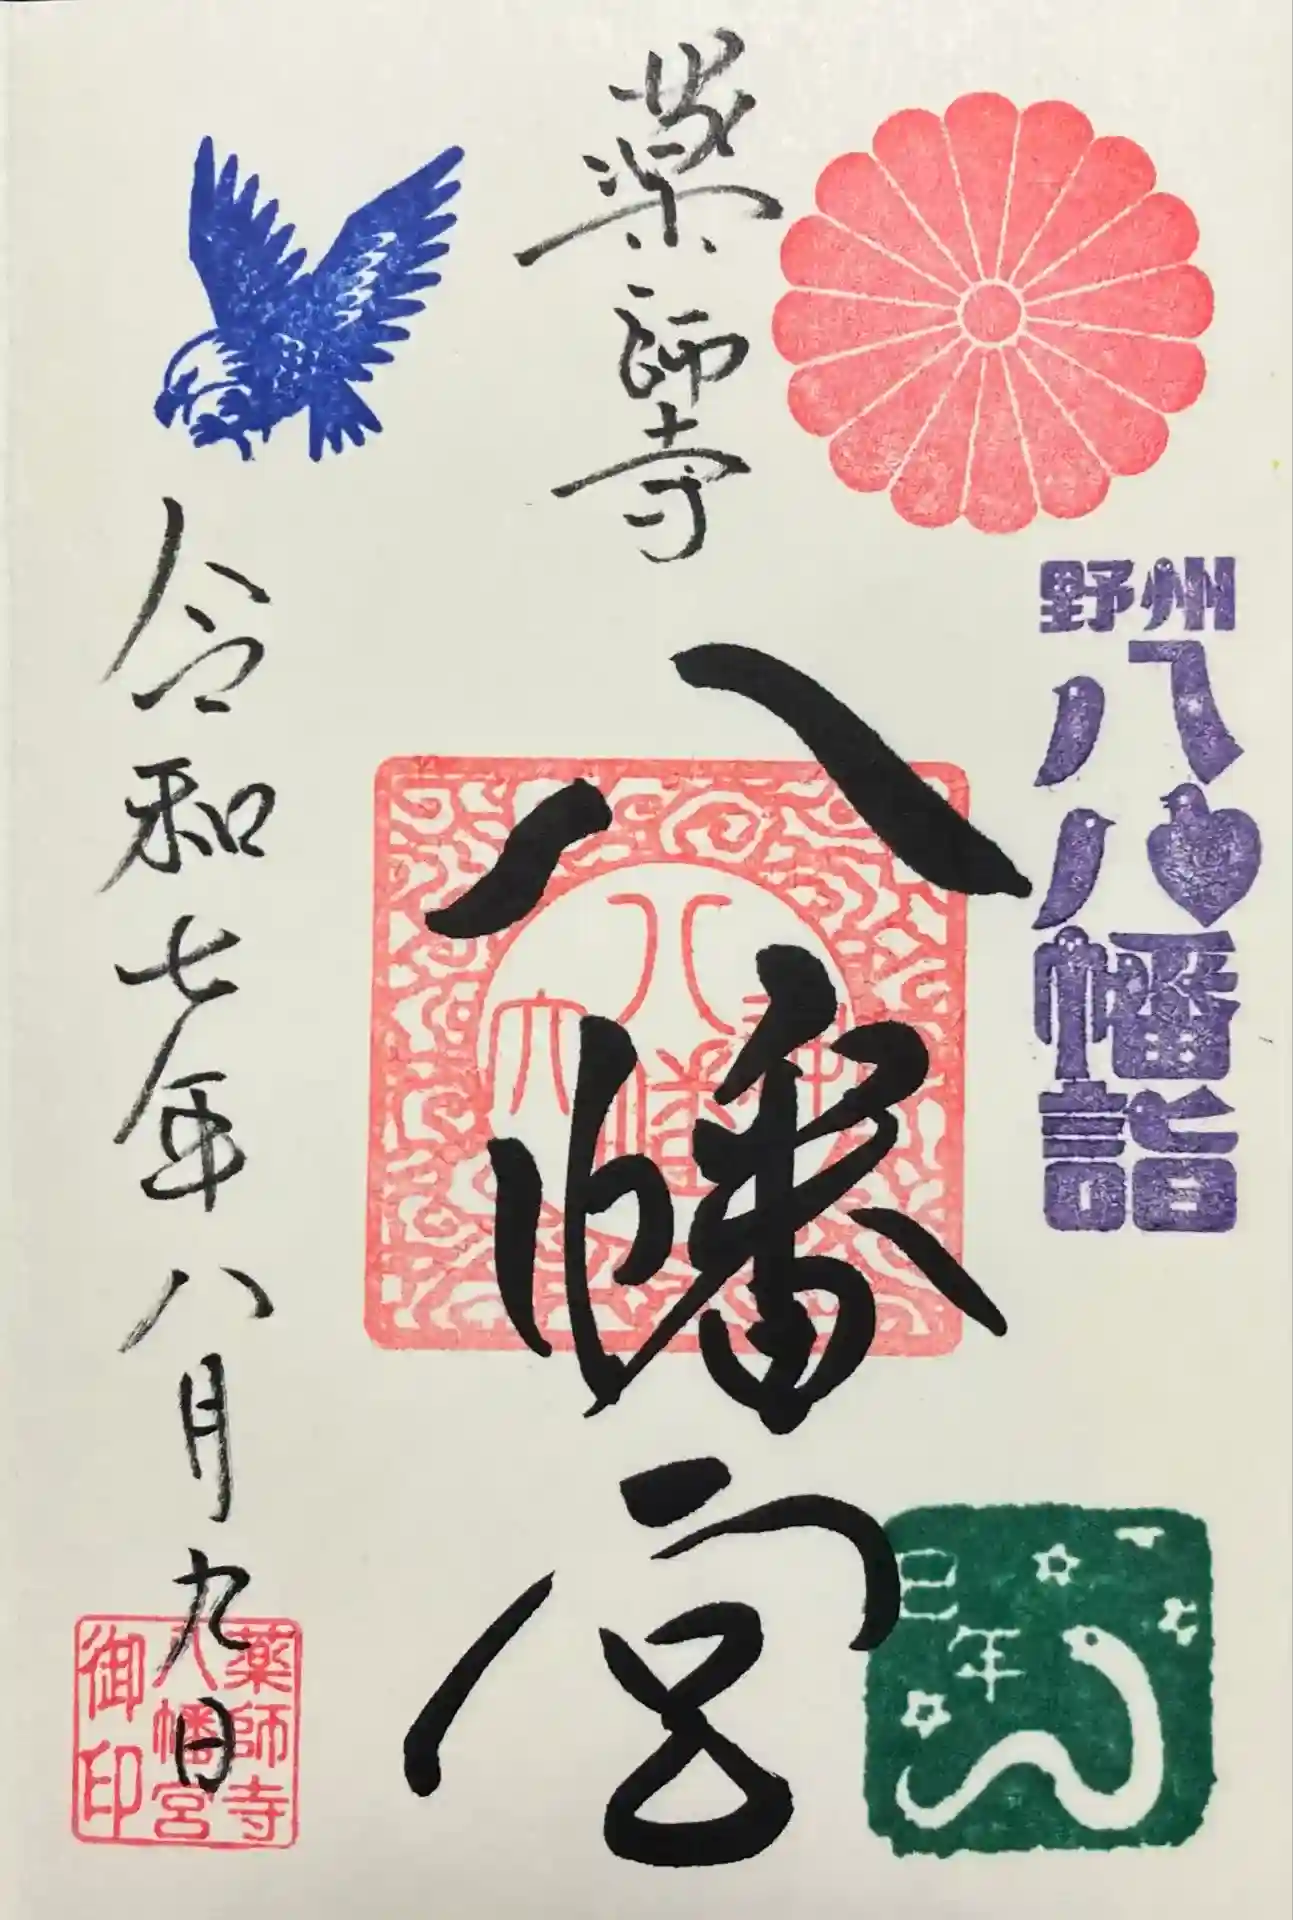 野州
八八幡詣
薬師寺
八幡宮
令和七年八月九日
薬師寺
八幡宮
御印
巳年